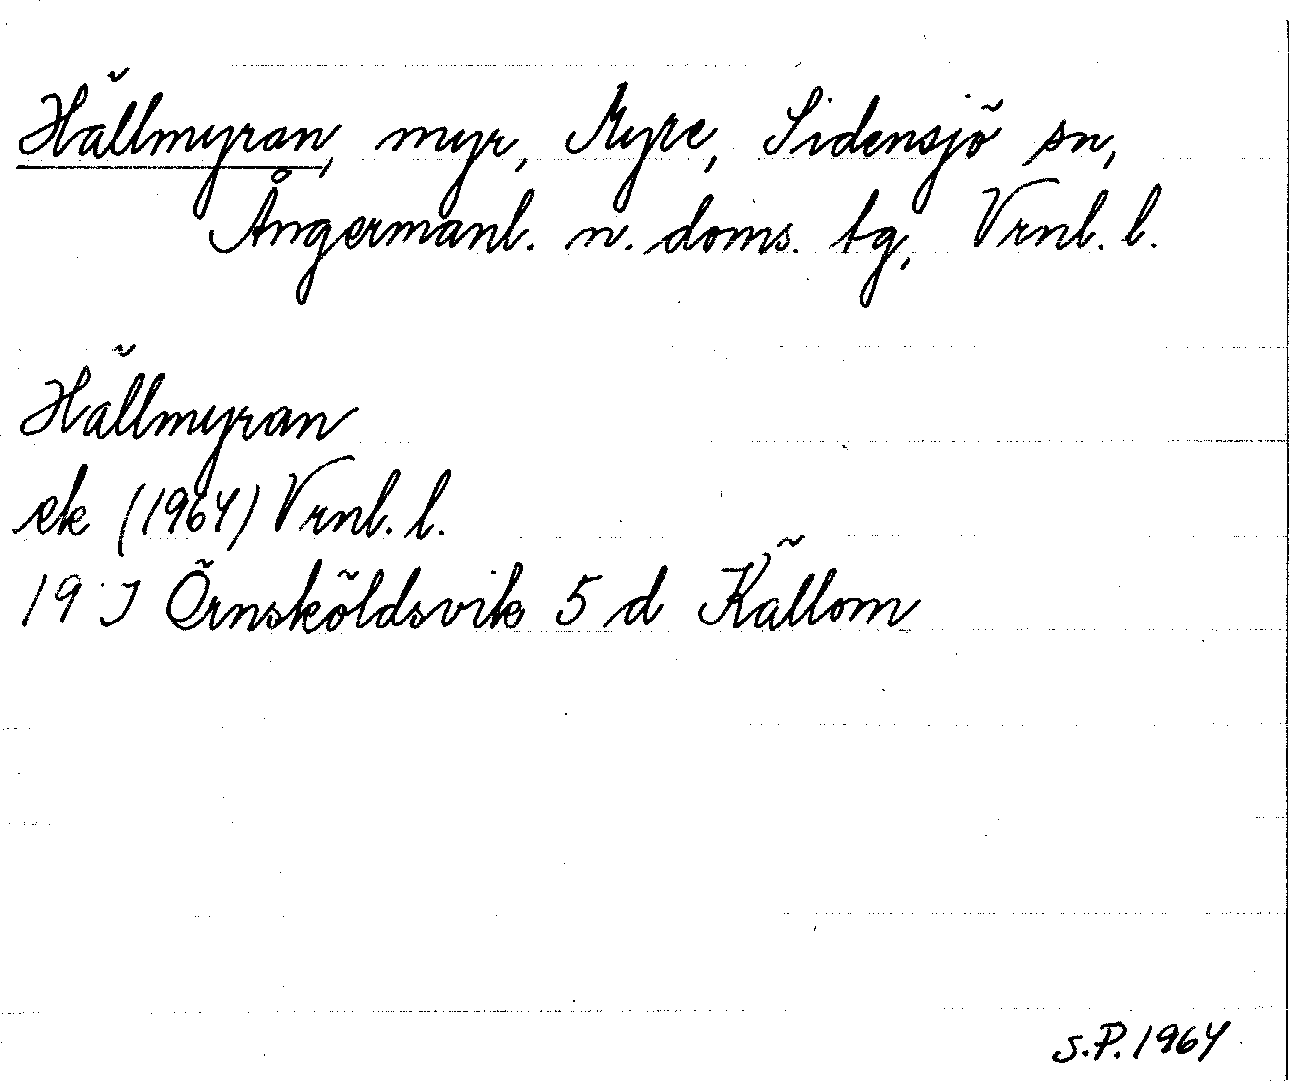 Hällmyran, myr, Myre, Sidensjö sn,
Ångermanl. n. doms. tg, Vrnl. l.
Hällmyran
ek (1964) Vrnl. l.
19 J Örnsköldsvik 5 d Källom
S.P. 1964